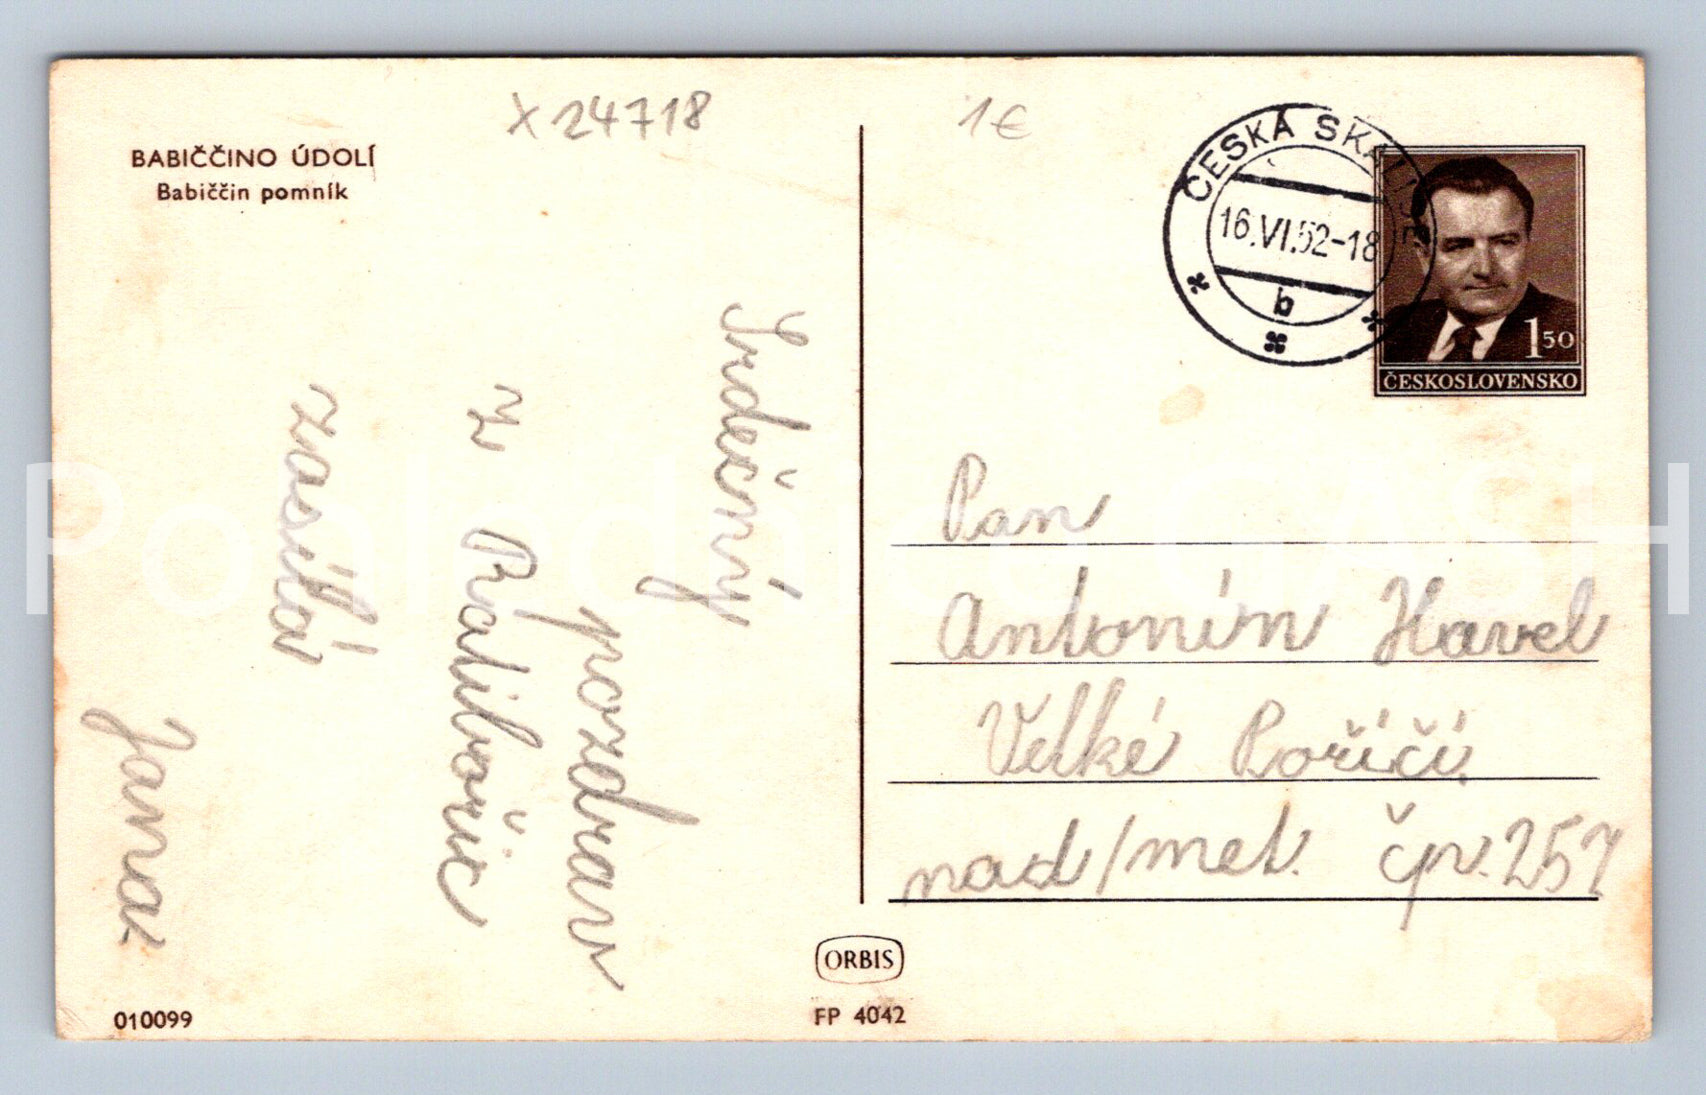 X 24718
1€
BABIČČINO ÚDOLÍ
Babiččin pomník
Srdečný
pozdrav
z Ratibořic
zasílá
Jarva
ČESKÁ SKALICE
16.VI.52-18
b
1 50
ČESKOSLOVENSKO
Pan
Antonín Havel
Velké Poříčí
nad/met. čp. 257
ORBIS
FP 4042
010099